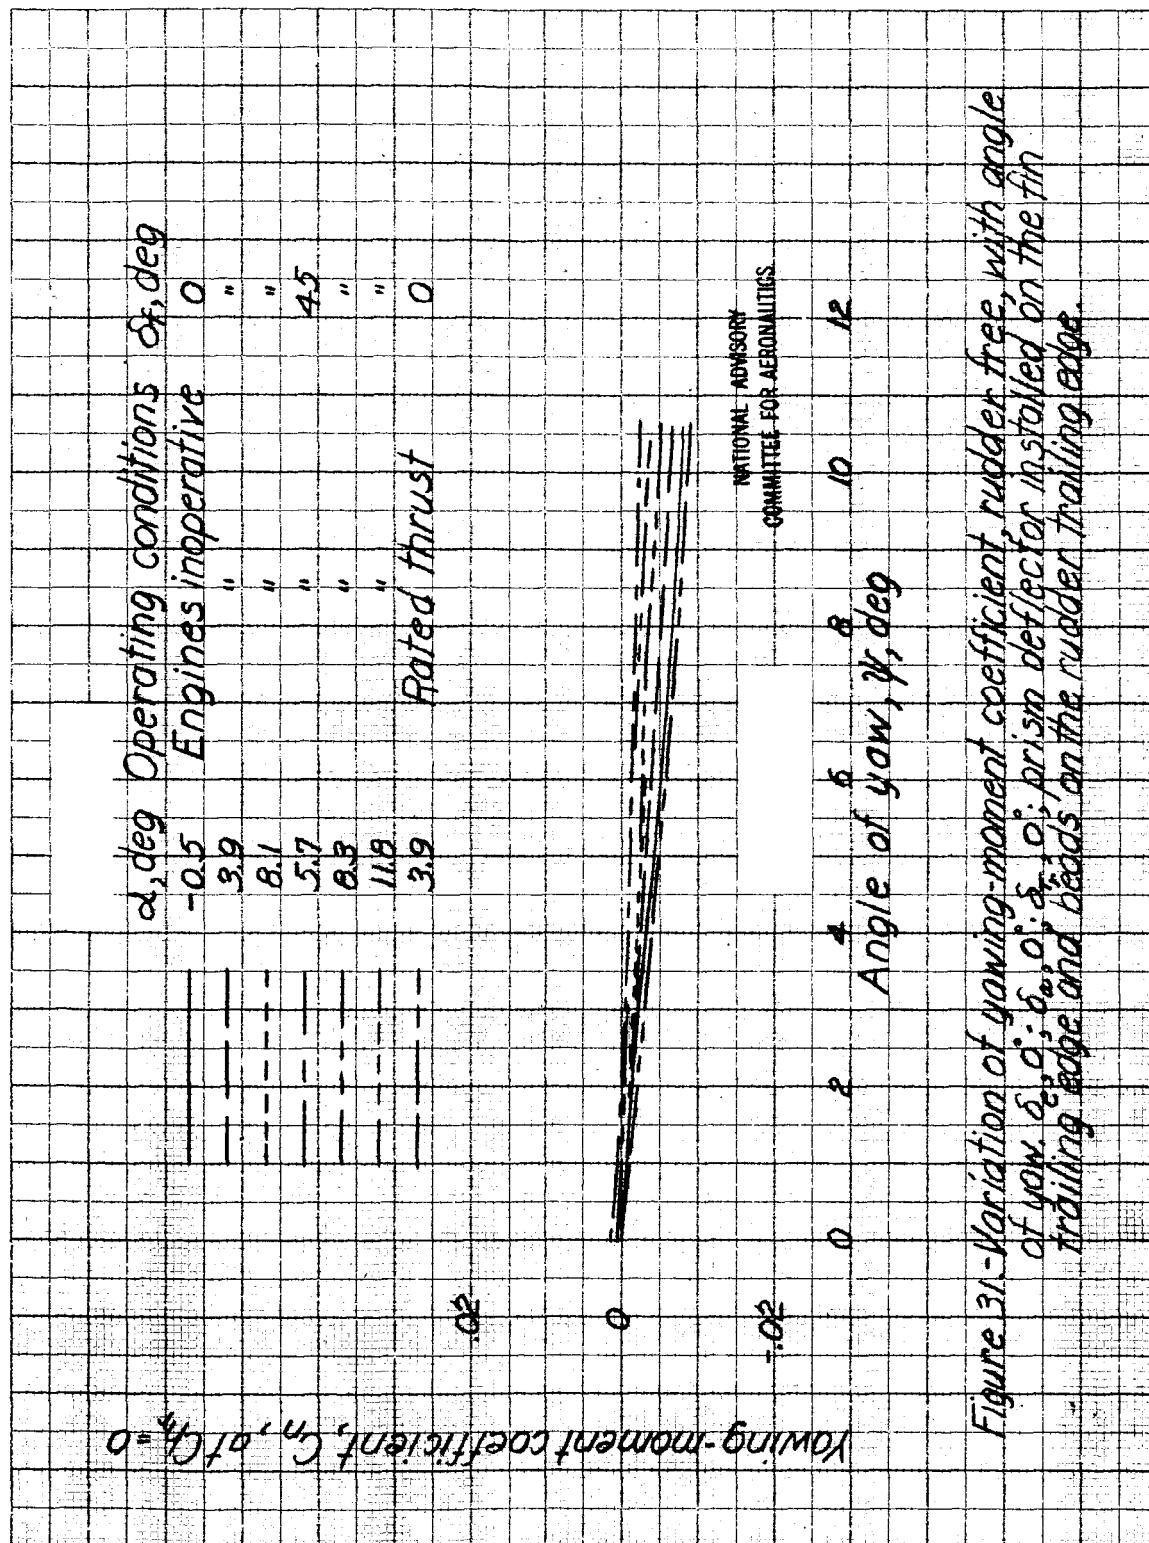 α, deg Operating conditions δF, deg
-0.5 Engines inoperative 0
3.9 " "
8.1 " "
5.7 " 45
8.3 " "
11.8 " "
3.9 Rated thrust 0
Yawing-moment coefficient, Cn, at Chr = 0
.02
0
-.02
0 2 4 6 8 10 12
Angle of yaw, ψ, deg
NATIONAL ADVISORY
COMMITTEE FOR AERONAUTICS
Figure 31.-Variation of yawing-moment coefficient, rudder free, with angle
of yaw. δe, 0°; δa, 0°; 0°; prism deflector installed on the fin
trailing edge and beads on the rudder trailing edge.